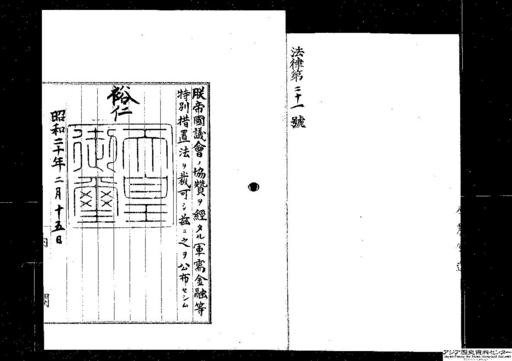 法律第二十一號
朕帝國議會ノ協贊ヲ經タル軍需金融等
特別措置法ヲ裁可シ茲ニ之ヲ公布セシム
裕仁
天皇御璽
昭和二十年二月十五日
内閣
アジア歴史資料センター